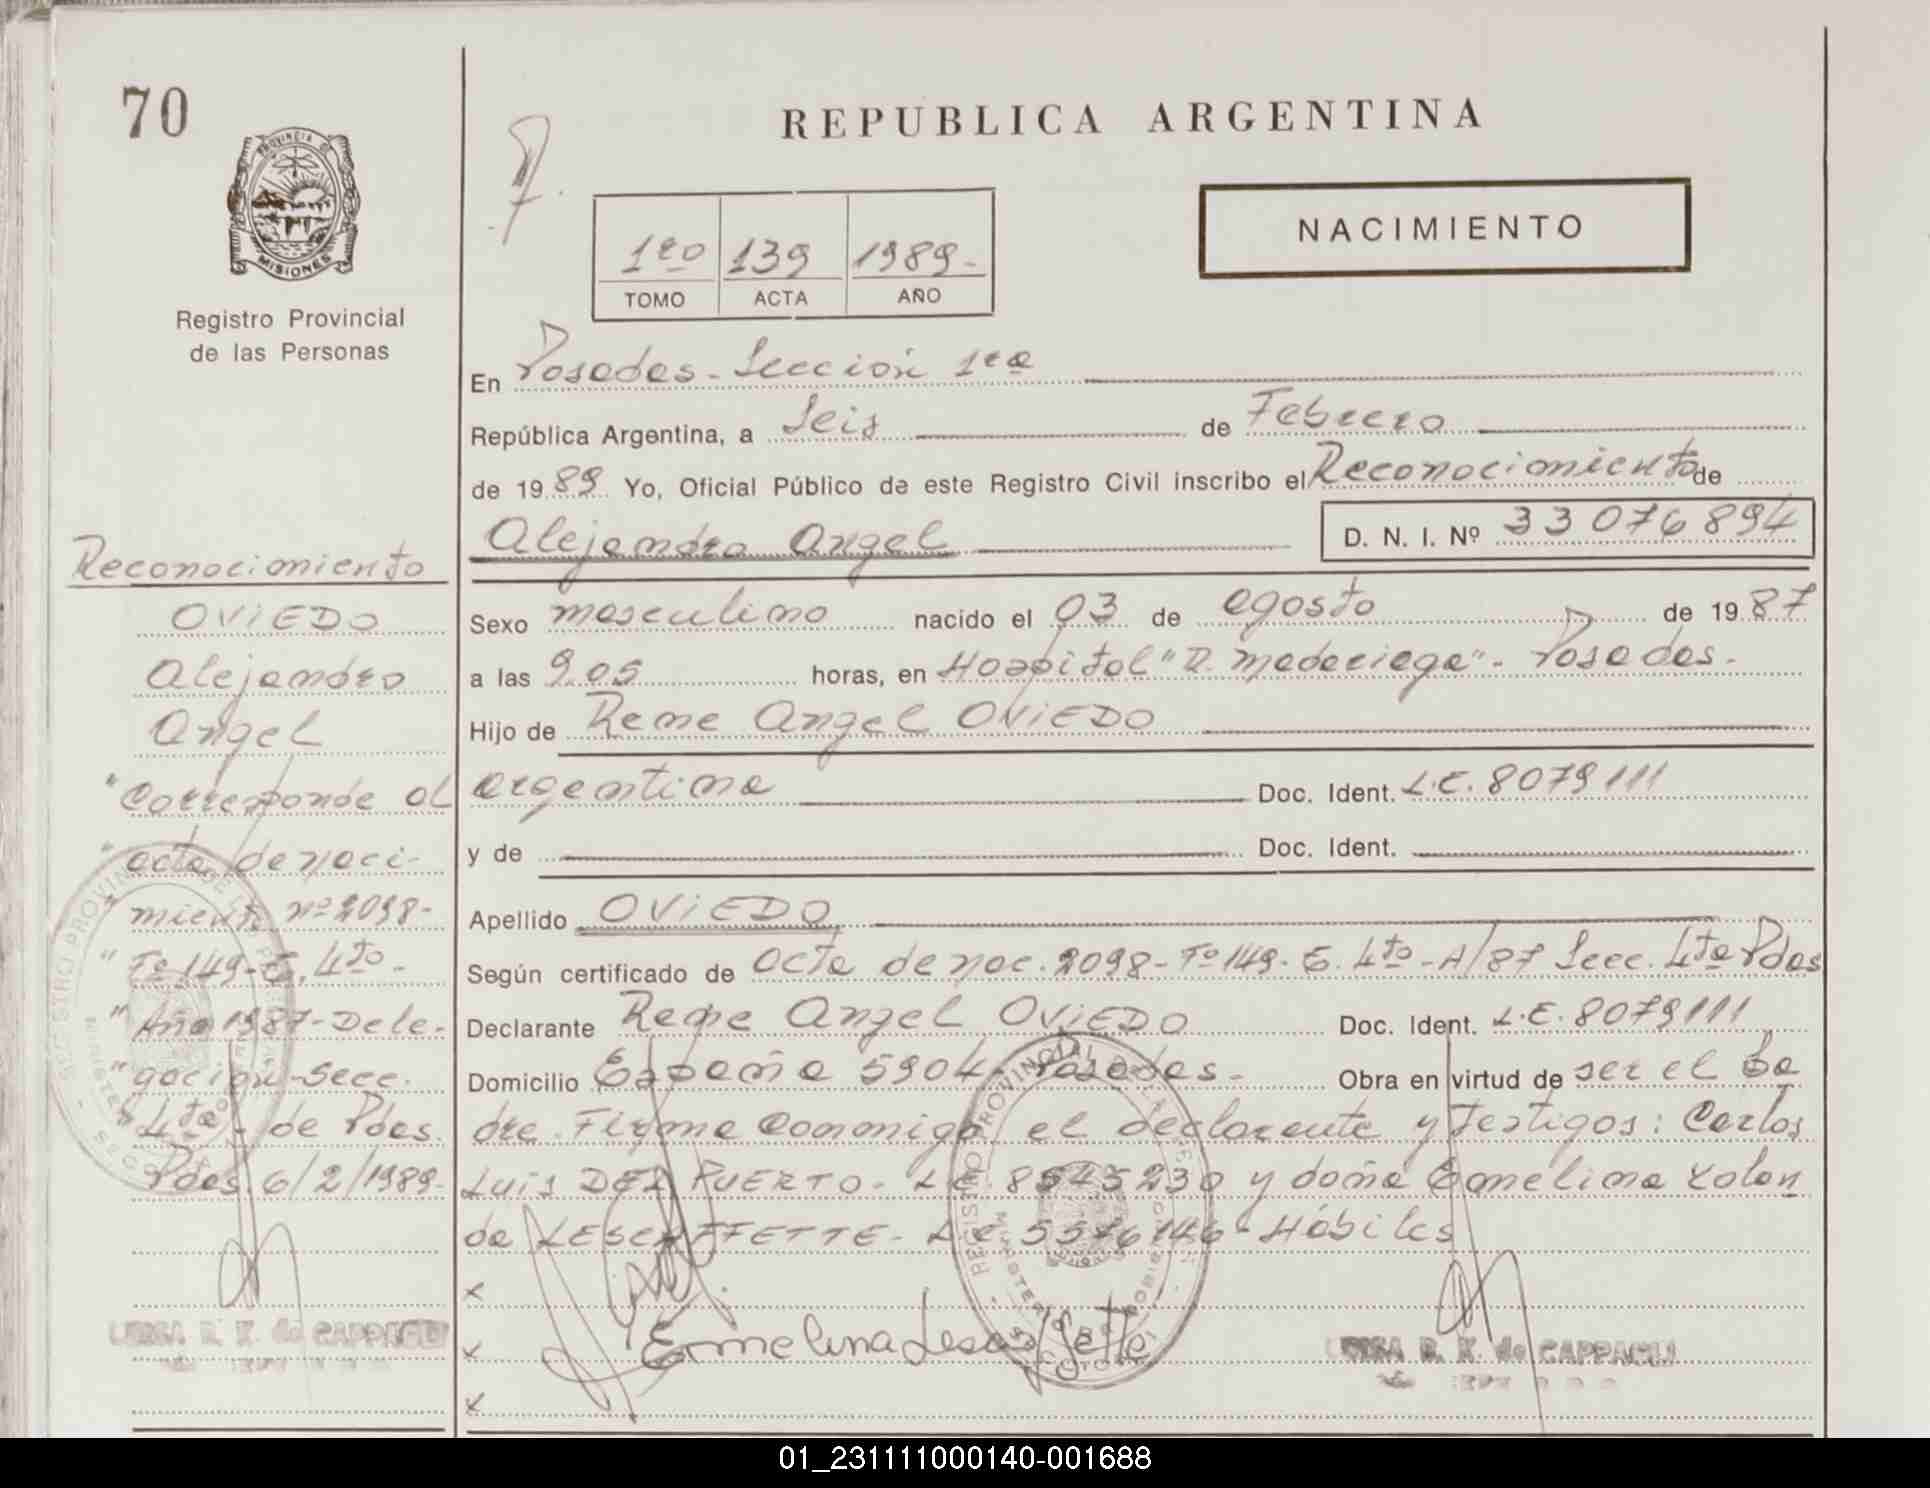 70
PROVINCIA DE
MISIONES
Registro Provincial
de las Personas
REPUBLICA ARGENTINA
NACIMIENTO
1ro 139 1989-
TOMO ACTA AÑO
En Posadas - Sección 1ra
República Argentina, a Seis de Febrero
de 1989 Yo, Oficial Público de este Registro Civil inscribo el Reconocimiento de
Alejandro Angel D. N. I. Nº 33076894
Sexo masculino nacido el 03 de agosto de 1987
a las 9.05 horas, en Hospital "R. Madariaga" - Posadas -
Hijo de Rene Angel OViEDO
argentina Doc. Ident. L.E. 8079111
y de Doc. Ident.
Apellido OViEDO
Según certificado de acta de nac. 2098 - Tº 149 - E. 4to - A/87 Secc. 4ta Pdas
Declarante Rene Angel OViEDO Doc. Ident. L.E. 8079111
Domicilio España 5904 - Posadas - Obra en virtud de ser el Pa
dre. Firma Conmigo el declarante y testigos: Carlos
Luis DEL PUERTO - L.E. 8545230 y doña Ermelina Yolan
da LESCAFFETTE - L.C. 5576146 - Hábiles
x
x Ermelina Lescaffette
x
LUISA R. K. de CAPPAGLI
Reconocimiento
OViEDO
Alejandro
Angel
"Corresponde al
"acta de naci-
"miento nº 2098-
"Tº 149 - E. 4to -
"Año 1987 - Dele-
"gación - Secc.
"4ta - de Pdas.
Pdas. 6/2/1989-
LUISA R. K. de CAPPAGLI
01_231111000140-001688